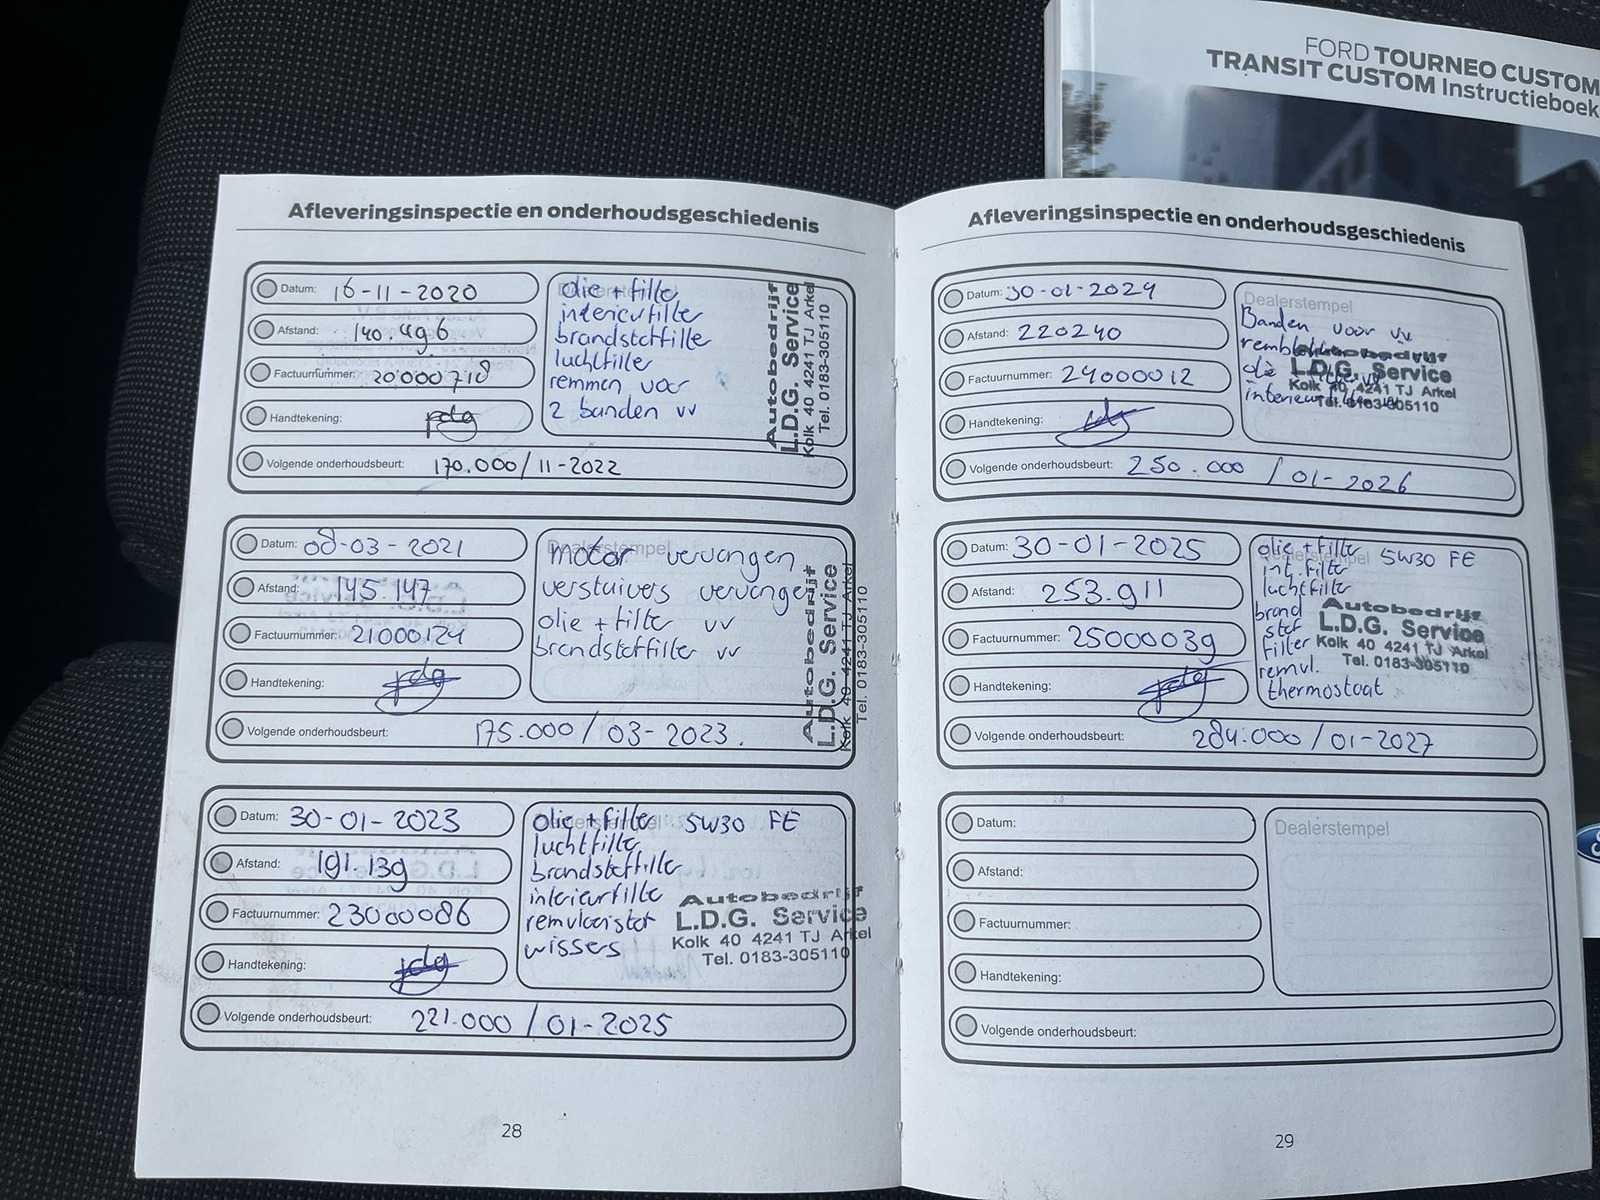 FORD TOURNEO CUSTOM
TRANSIT CUSTOM Instructieboek
Afleveringsinspectie en onderhoudsgeschiedenis
Datum: 16-11-2020
Afstand: 140.496
Factuurnummer: 20000718
Handtekening:
Volgende onderhoudsbeurt: 170.000/11-2022
olie + filter
interieurfilter
brandstoffilter
luchtfilter
remmen voor
2 banden vv
Autobedrijf
L.D.G. Service
Kolk 40 4241 TJ Arkel
Tel. 0183-305110
Datum: 08-03-2021
Afstand: 145.147
Factuurnummer: 21000124
Handtekening:
Volgende onderhoudsbeurt: 175.000/03-2023.
Dealerstempel
motor vervangen
verstuivers vervangen
olie + filter vv
brandstoffilter vv
Autobedrijf
L.D.G. Service
Kolk 40 4241 TJ Arkel
Tel. 0183-305110
Datum: 30-01-2023
Afstand: 191.139
Factuurnummer: 23000086
Handtekening:
Volgende onderhoudsbeurt: 221.000/01-2025
olie + filter 5W30 FE
luchtfilter
brandstoffilter
interieurfilter
remvloeistof
wissers
Autobedrijf
L.D.G. Service
Kolk 40 4241 TJ Arkel
Tel. 0183-305110
28
Afleveringsinspectie en onderhoudsgeschiedenis
Datum: 30-01-2024
Afstand: 220240
Factuurnummer: 24000012
Handtekening:
Volgende onderhoudsbeurt: 250.000/01-2026
Dealerstempel
Banden voor vv
olie
Autobedrijf
L.D.G. Service
Kolk 40 4241 TJ Arkel
Tel. 0183-305110
Datum: 30-01-2025
Afstand: 253.911
Factuurnummer: 25000039
Handtekening:
Volgende onderhoudsbeurt: 284.000/01-2027
olie + filter 5W30 FE
int. filter
luchtfilter
brand
stof
filter
remvl.
thermostaat
Autobedrijf
L.D.G. Service
Kolk 40 4241 TJ Arkel
Tel. 0183-305110
Datum:
Afstand:
Factuurnummer:
Handtekening:
Volgende onderhoudsbeurt:
Dealerstempel
29